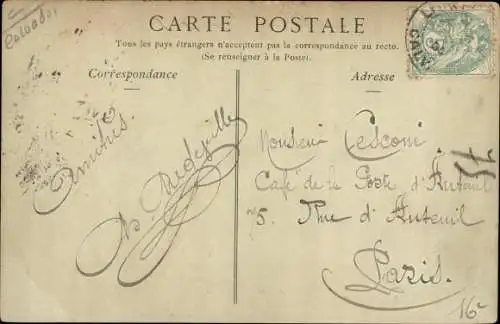 Calvados
CARTE POSTALE
Tous les pays étrangers n'acceptent pas la correspondance au recto.
(Se renseigner à la Poste).
Correspondance
Adresse
Amitiés.
Monsieur
Café de la Poste d'Auteuil
75. Rue d'Auteuil
Paris.
16e
75